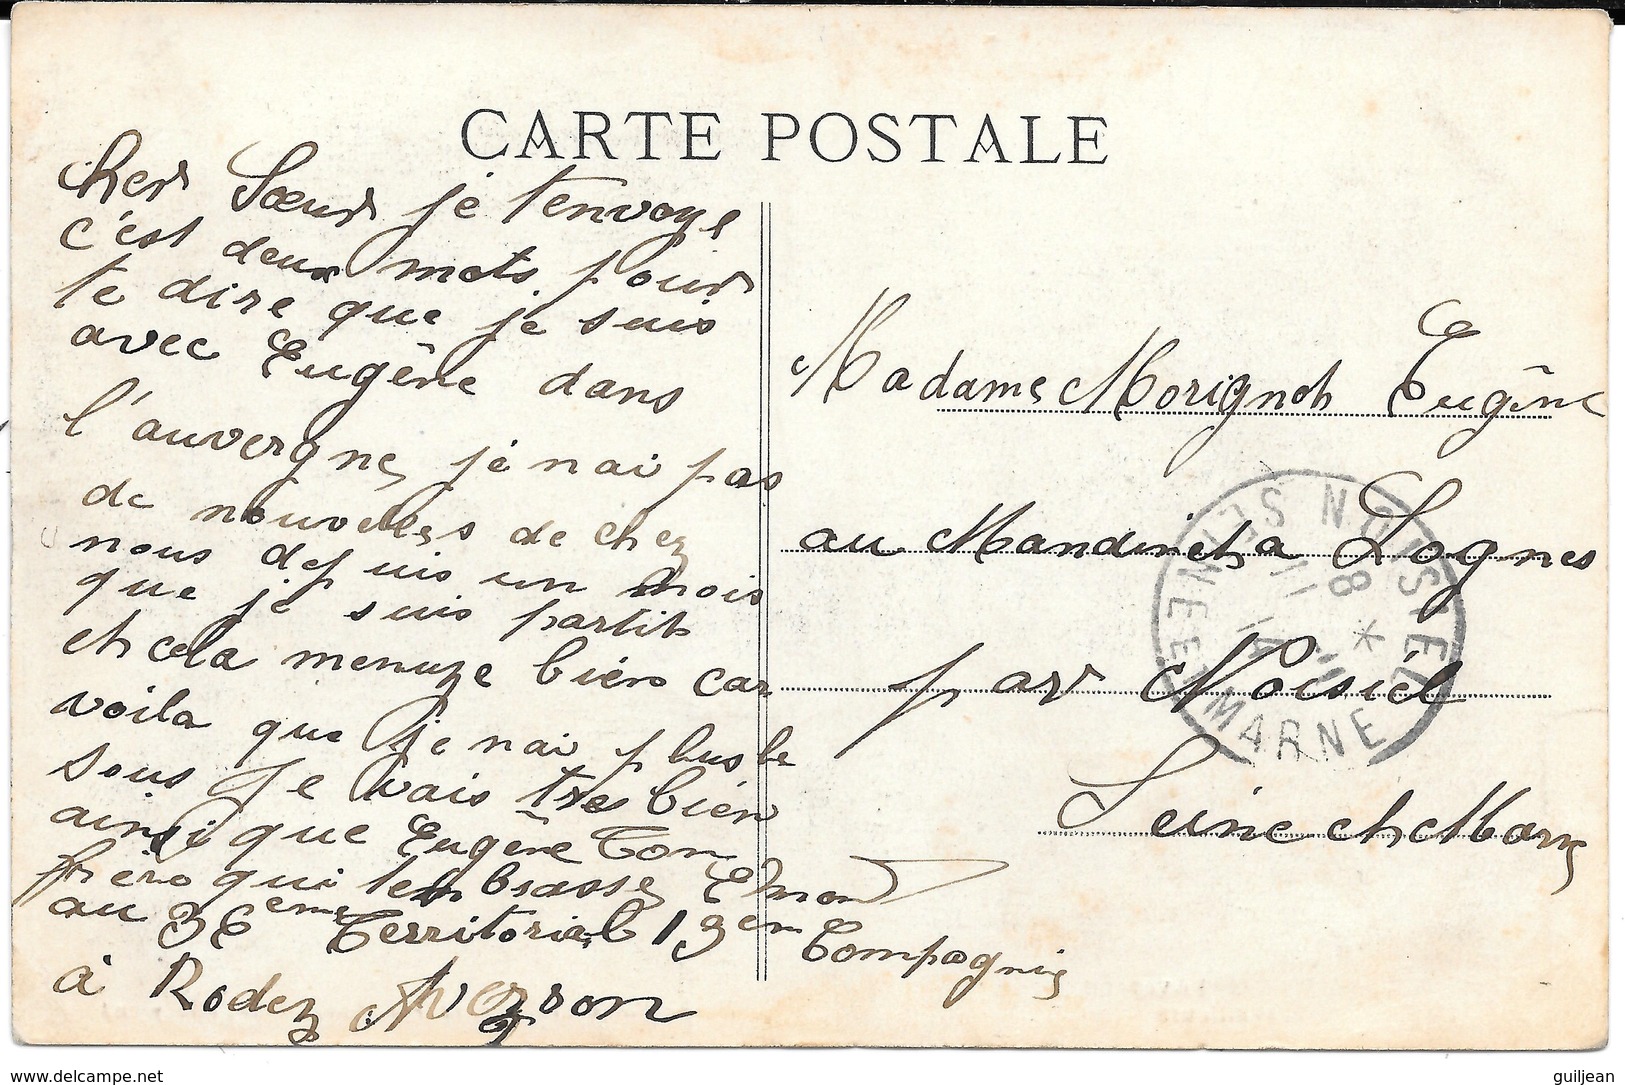 CARTE POSTALE
Cher Sœur je t'envoye
c'est deux mots pour
te dire que je suis
avec Eugêne dans
l'auvergne, je nai pas
de nouvelles de chez
nous depuis un mois
que je suis partit
et cela menuze bien car
voila que je nai plus le
sous je vais tres bien
ainsi que Eugêne Ton
frère qui tembrasse, Emon
au 36eme Territorial 13em Compagnie
à Rodez Aveyron
Madame Morignot Eugêne
au Mandinet a Lognes
par Noisiel
Seine et Marne
NOISIEL
SEINE ET MARNE
18 *
11
14
www.delcampe.net
guiljean